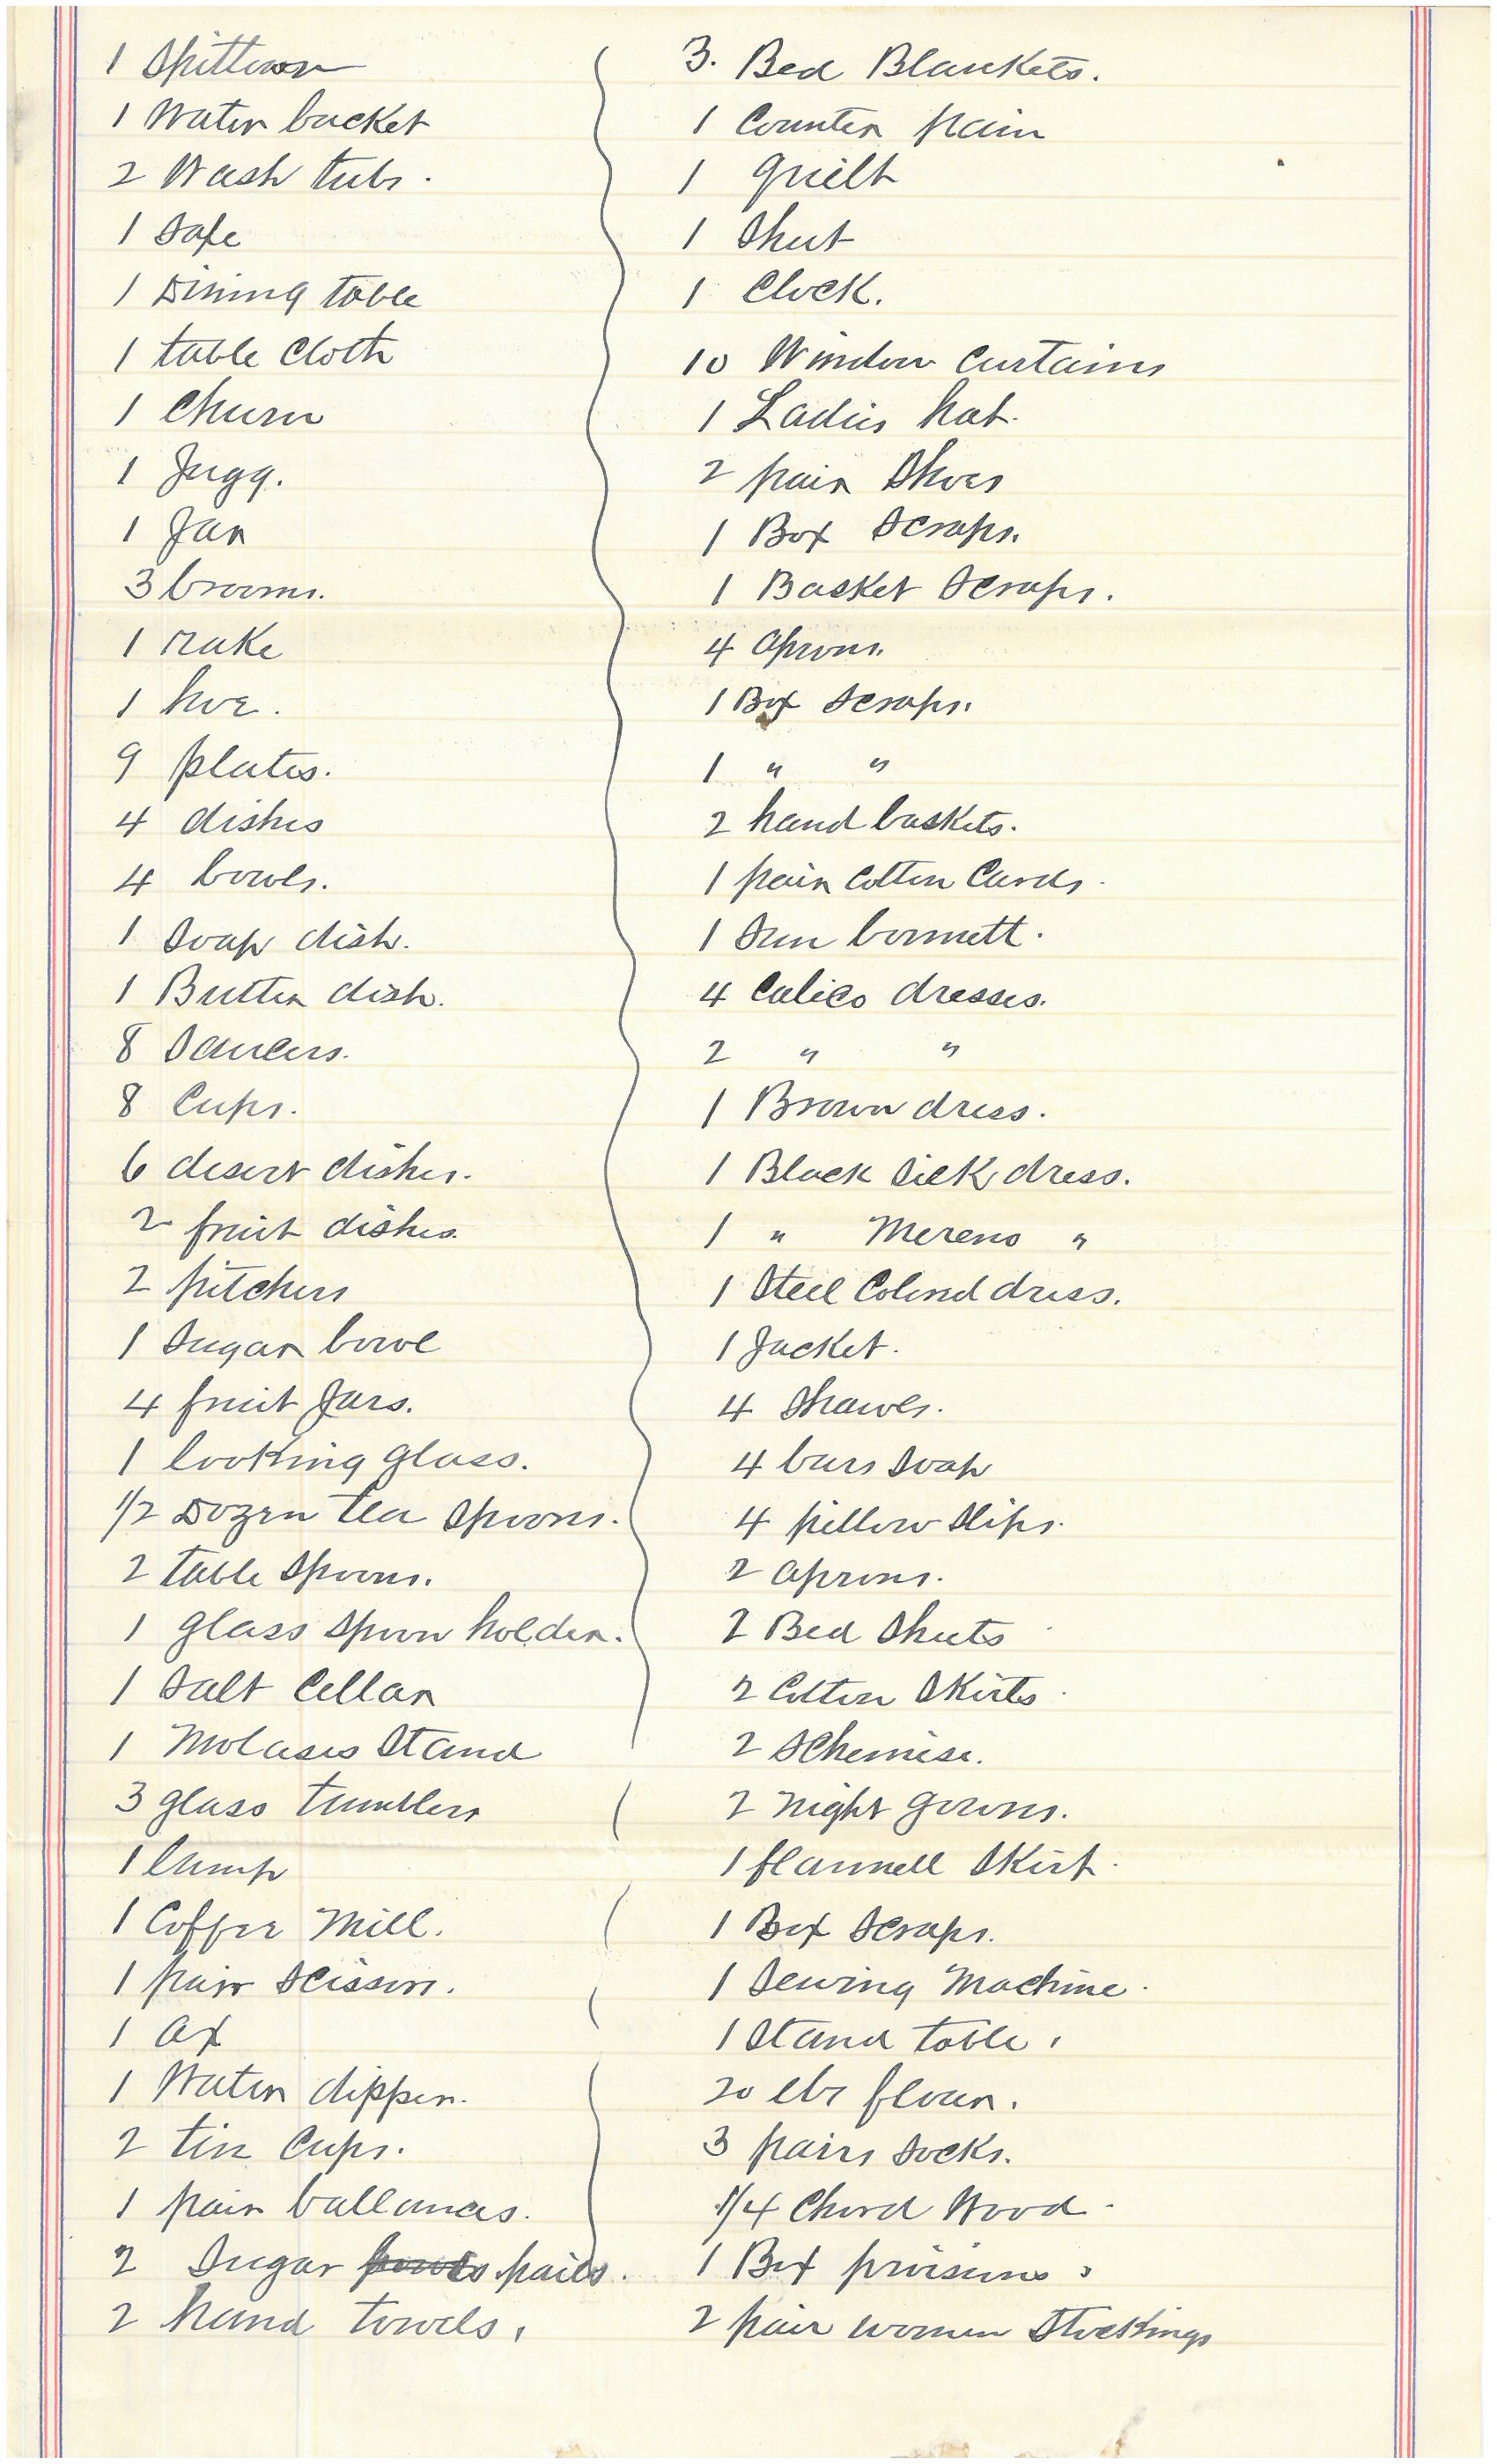 1 Spittoon
1 Water bucket
2 Wash tubs.
1 Safe
1 Dining table
1 table Cloth
1 Churn
1 Jugg.
1 Jar
3 brooms.
1 rake
1 hoe.
9 plates.
4 dishes
4 bowls.
1 Soap dish.
1 Butter dish.
8 Saucers.
8 Cups.
6 desert dishes.
2 fruit dishes.
2 pitchers
1 Sugar bowl
4 fruit Jars.
1 looking glass.
1/2 Dozen tea Spoons.
2 table Spoons.
1 glass Spoon holder.
1 Salt Cellar
1 Molases Stand
3 glass tumblers
1 lamp
1 Coffee Mill.
1 pair Scissors.
1 Ax
1 Water dipper.
2 tin Cups.
1 pair ballances.
2 Sugar pails.
2 hand towels.
3. Bed Blankets.
1 Counter pain
1 quilt
1 Sheet
1 Clock.
10 Window Curtains
1 Ladies hat.
2 pair Shoes
1 Box Scraps.
1 Basket Scraps.
4 Aprons.
1 Box Scraps.
1 " "
2 hand baskets.
1 pair Cotton Cards.
1 Sun bonnett.
4 Calico dresses.
2 " "
1 Brown dress.
1 Black Silk dress.
1 " Mereno "
1 Steel Colored dress.
1 Jacket.
4 Shawls.
4 bars Soap
4 pillow Slips.
2 Aprons.
2 Bed Sheets
2 Cotton Skirts.
2 Schemise.
2 Night gowns.
1 flannell Skirt.
1 Box Scraps.
1 Sewing Machine.
1 Stand table.
20 lbs flour.
3 pairs Socks.
1/4 Chord Wood.
1 Box
2 pair women Stockings